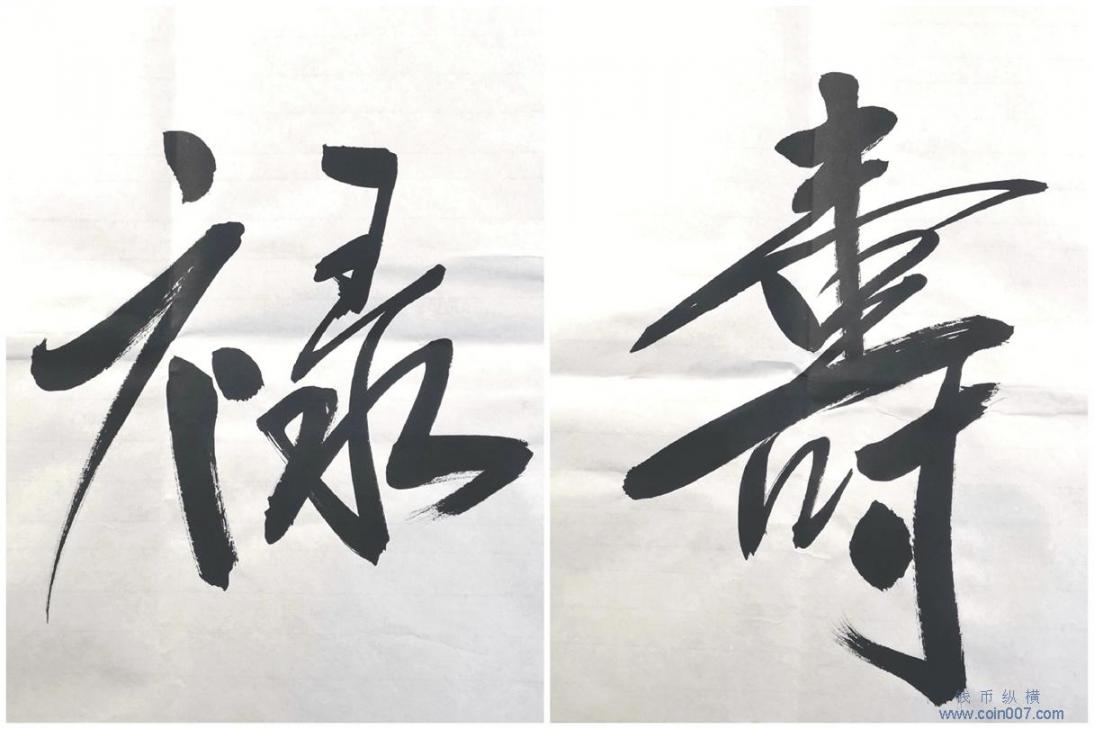 禄
壽
钱币纵横
www.coin007.com